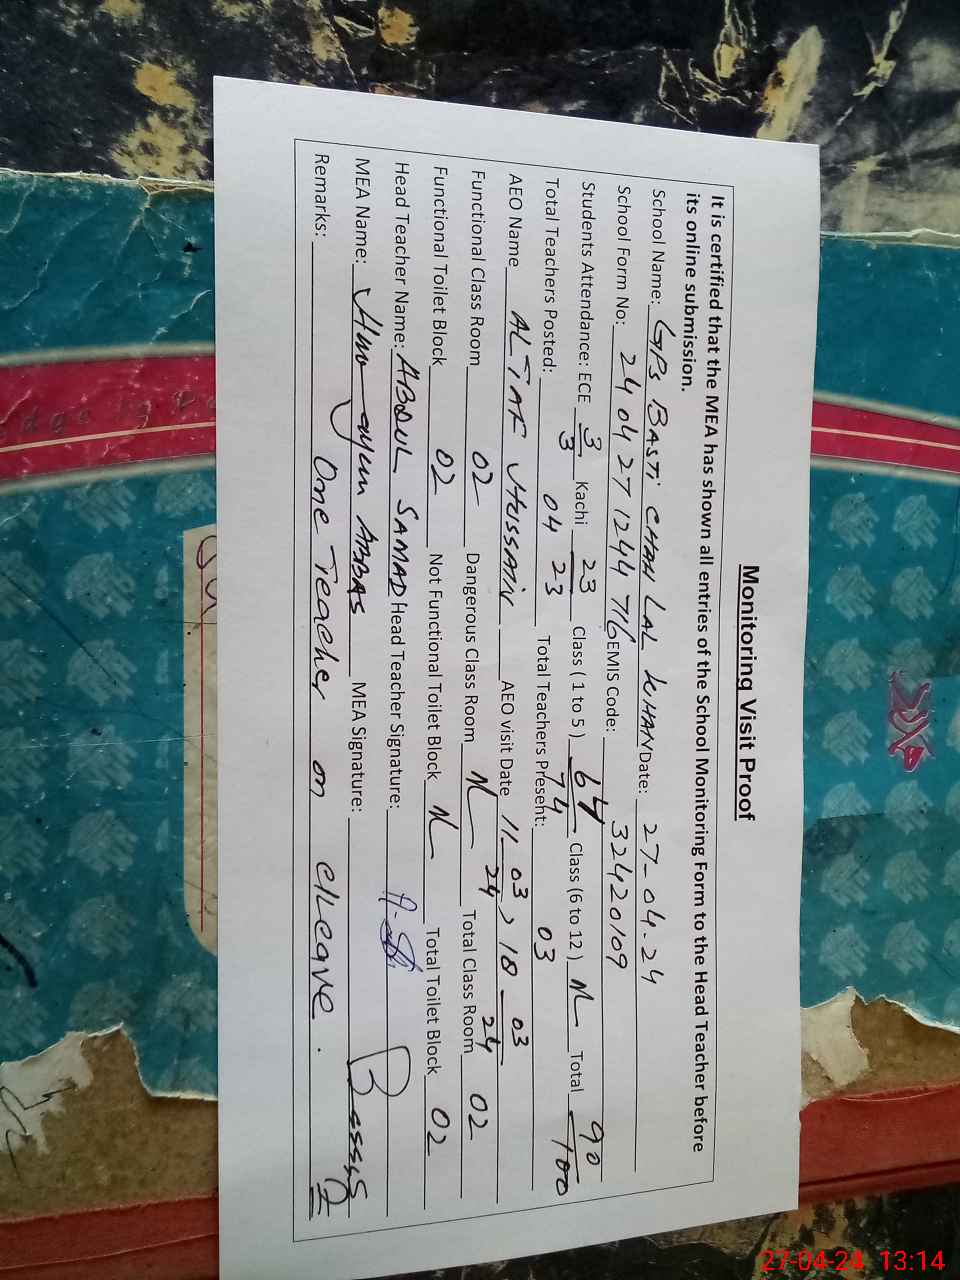 Monitoring Visit Proof
It is certified that the MEA has shown all entries of the School Monitoring Form to the Head Teacher before
its online submission.
School Name: GPS BASTI CHAN LAL KHAN Date: 27-04-24
School Form No: 24 04 27 1244 716 EMIS Code: 32420109
Students Attendance: ECE 3/3 Kachi 23/23 Class ( 1 to 5 ) 64/74 Class (6 to 12 ) N Total 90/100
Total Teachers Posted: 04 Total Teachers Present: 03
AEO Name ALTAF HUSSAIN AEO visit Date 11-03-24, 18-03-24
Functional Class Room 02 Dangerous Class Room N Total Class Room 02
Functional Toilet Block 02 Not Functional Toilet Block N Total Toilet Block 02
Head Teacher Name: ABDUL SAMAD Head Teacher Signature:
MEA Name: Humayun ABBAS MEA Signature:
Remarks: One Teacher on cLeave.
27-04-24 13:14